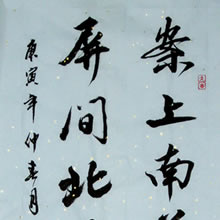 案上南
屏间北
庚寅年仲春月